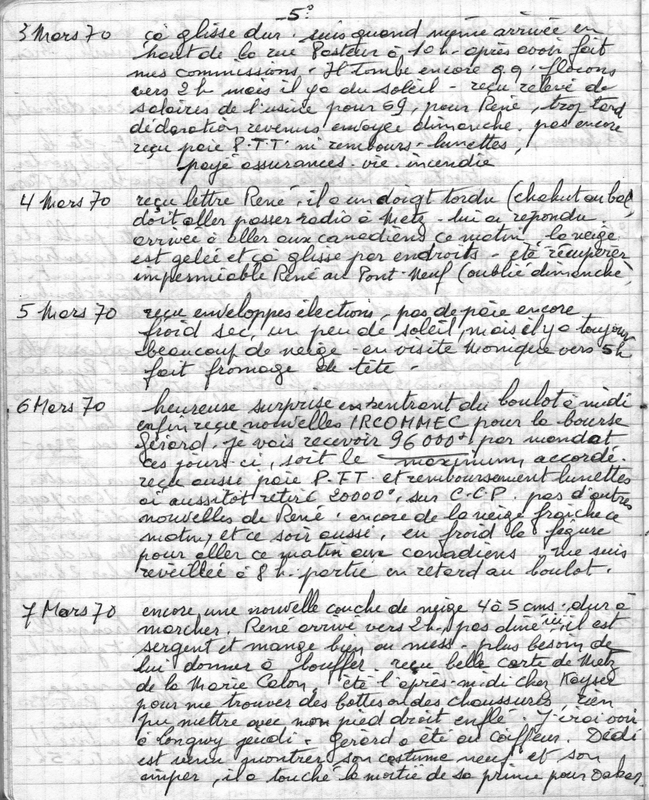 5°
3 Mars 70 çà glisse dur. suis quand même arrivée en
haut de la rue Pasteur à 10h. après avoir fait
mes commissions. Il tombe encore q.q. flocons
vers 2h mais il y a du soleil - reçu relevé de
salaires de l'usine pour 69, pour René, trop tard
déclaration revenus envoyée dimanche. pas encore
reçu paie P.T.T. ni rembours. lunettes,
payé assurances. vie. incendie
4 Mars 70 reçu lettre René, il a un doigt tordu (chahut au bal)
doit aller passer radio à Metz - lui ai répondu.
arrivée à aller aux canadiens ce matin, la neige
est gelée et çà glisse par endroits - été récupérer
imperméable René au Pont-Neuf (oublié dimanche)
5 Mars 70 reçu enveloppes élections, pas de paie encore
froid sec, un peu de soleil, mais il y a toujours
beaucoup de neige - en visite Monique vers 5h
fait fromage de tête -
6 Mars 70 heureuse surprise en rentrant du boulot à midi
enfin reçue nouvelles IRCOMMEC pour la bourse
Gérard. je vais recevoir 96000 par mandat
ces jours-ci, soit le maximum accordé.
reçu aussi paie P.T.T. et remboursement lunettes
ai aussitôt retiré 20000 sur C.C.P. pas d'autres
nouvelles de René. encore de la neige fraîche ce
matin, et ce soir aussi, en froid la figure
pour aller ce matin aux canadiens. me suis
réveillée à 8h. partie en retard au boulot.
7 Mars 70 encore une nouvelle couche de neige 4 à 5 cms. dur à
marcher. René arrivé vers 2h, pas dîné ici, il est
sergent et mange bien au mess. plus besoin de
lui donner à bouffer. reçu belle carte de Metz
de la Marie Colon. été l'après-midi chez Kayser
pour me trouver des bottes ou des chaussures, rien
pu mettre avec mon pied droit enflé. J'irai voir
à Longwy jeudi. Gérard a été au coiffeur. Dédé
est venu montrer son costume neuf et son
imper, il a touché la moitié de sa prime pour Dakar